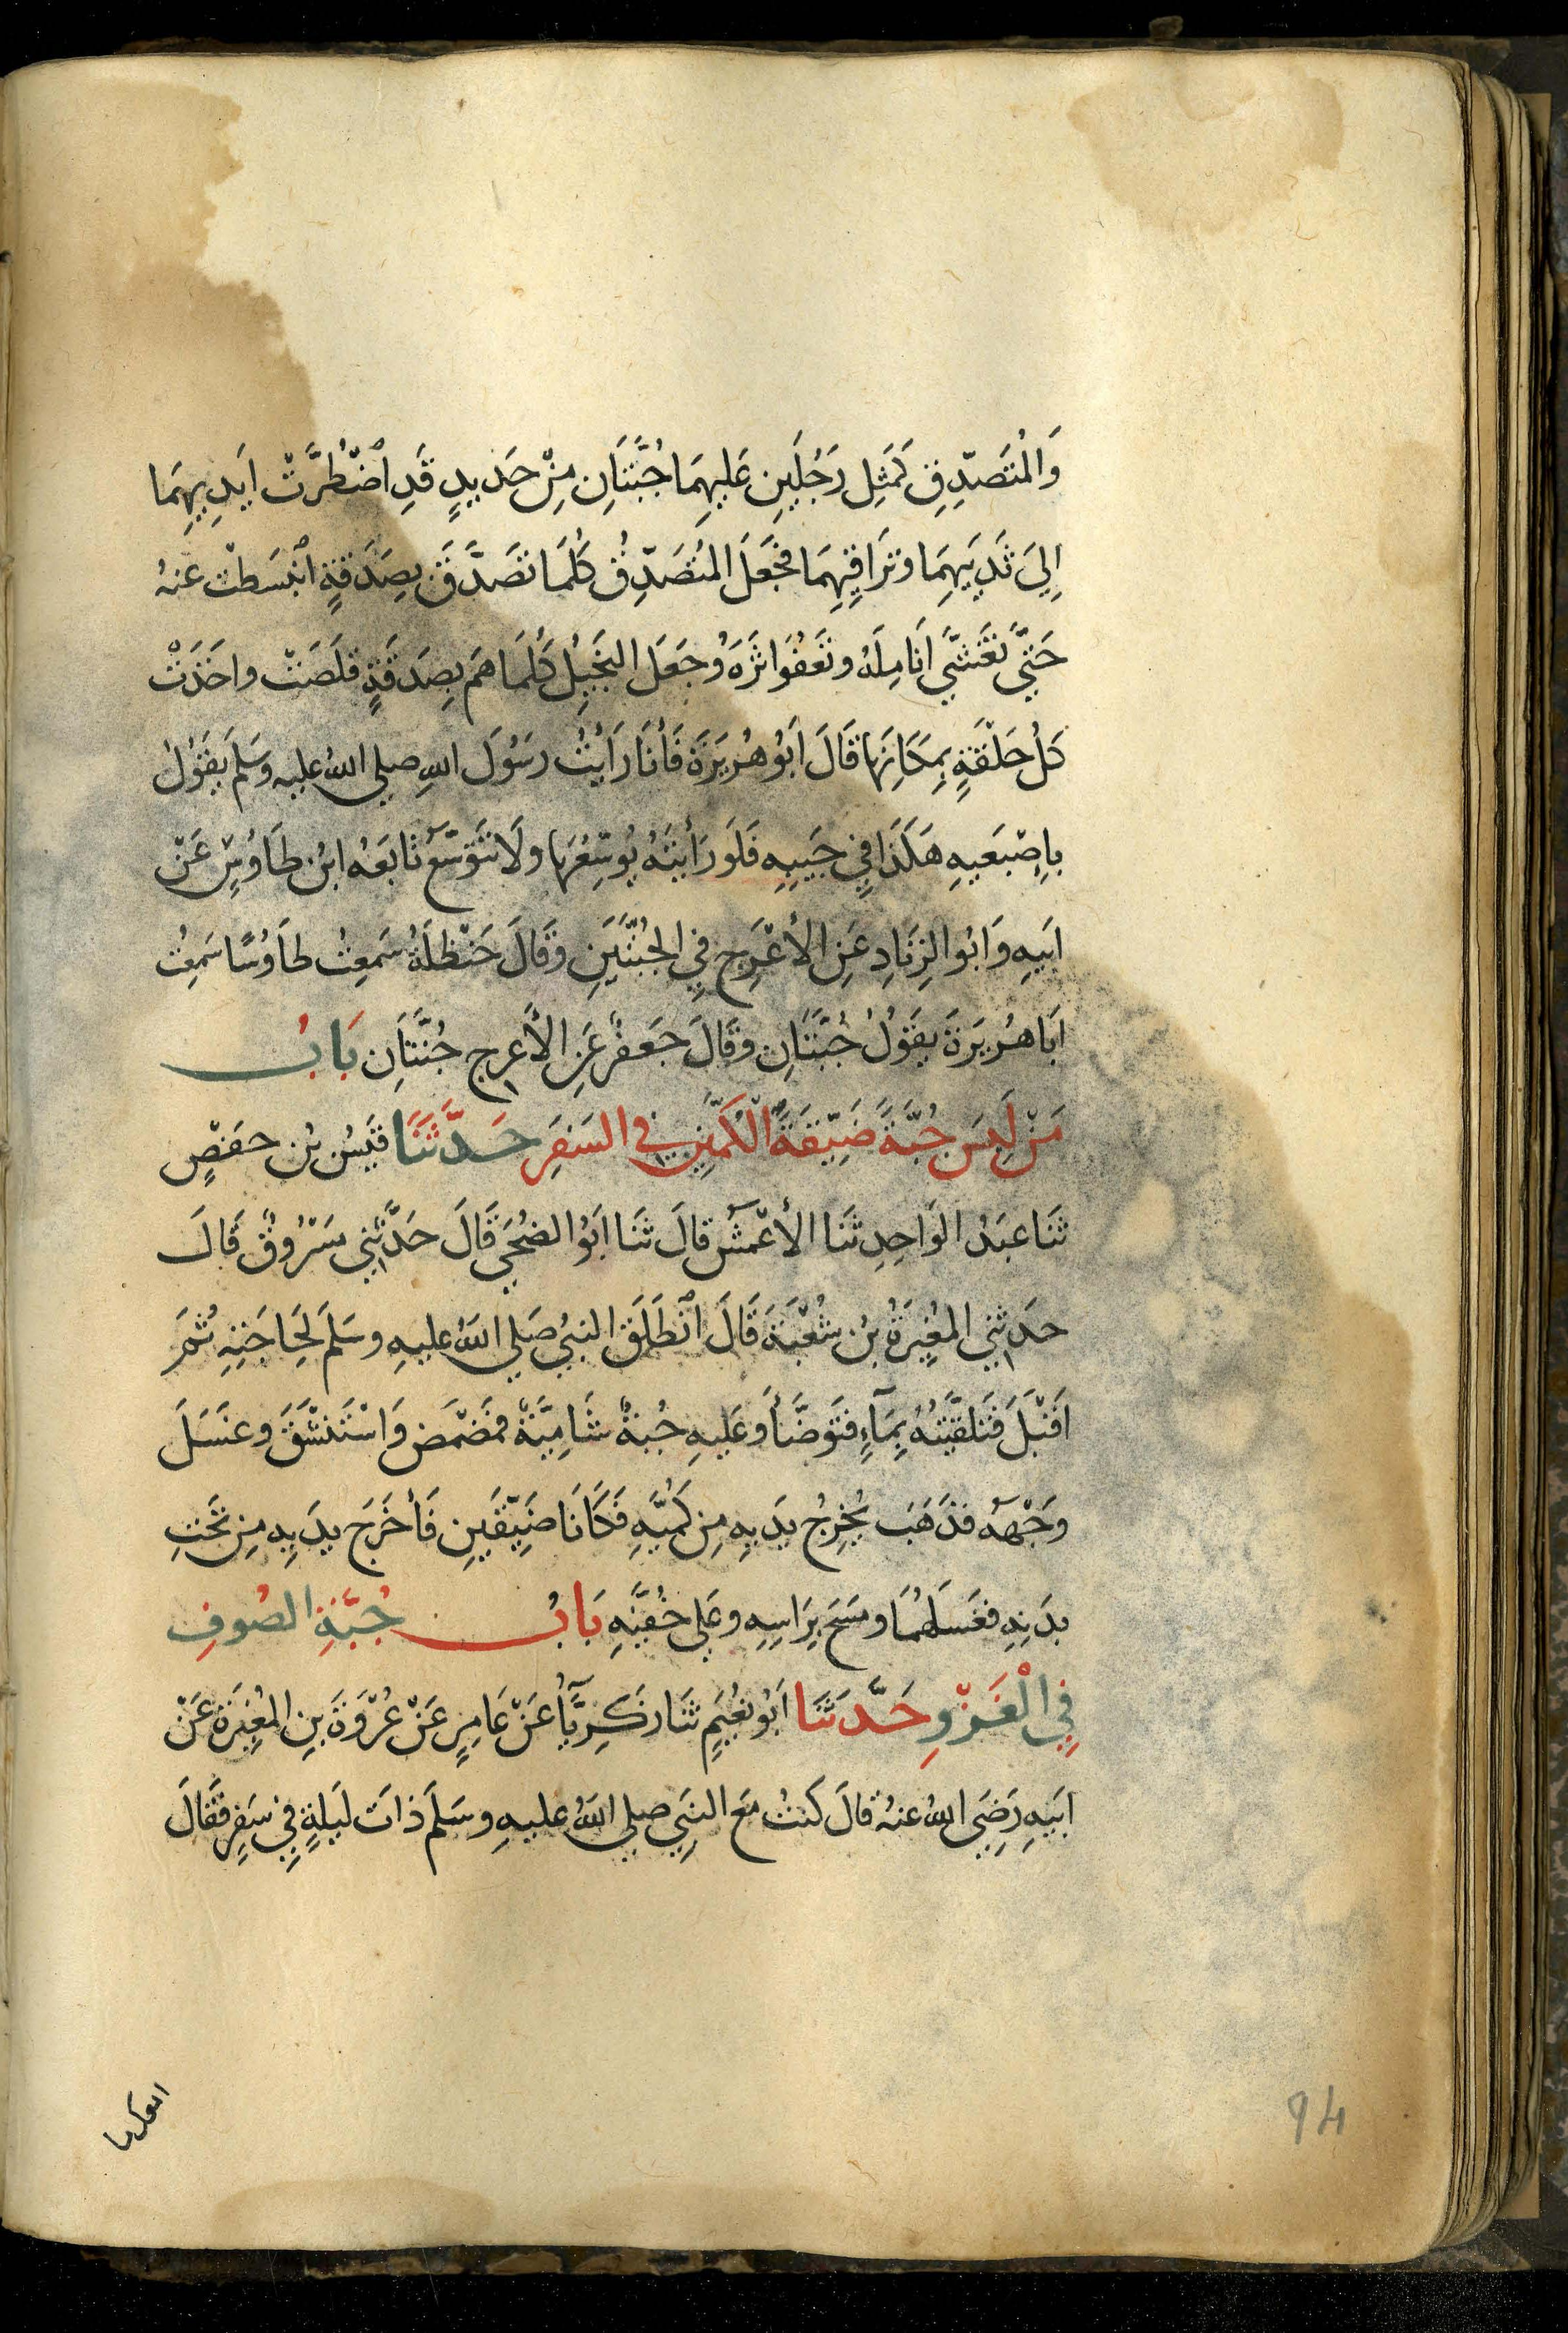 وَالْمُتَصَدِّقِ كَمَثِلِ رَجُلَيْنِ عَلَيهِمَا جُبَّتَانِ مِنْ حَدِيدٍ قَدِ اُضْطُرَّتْ اَيدِيهِمَا
اِلَي ثَدِيَيهِمَا وتَرَاقِيهِمَا فَجَعَلَ المُتَصَدِّقُ كُلَمَا تَصَدَّقَ بِصَدَقَةٍ انْبَسَطَتْ عَنهُ
حَتَّي تَغَشَّي اَنَامِلَهُ وتَعفُوَ اثَرَهُ وجَعَلَ البَخِيلُ كُلَمَا هَم بِصَدَقَةٍ قلَصَتْ واخَذَتْ
كُلُ حَلْقَةٍ بِمَكَانِهَا قَالَ اَبُو هُرَيرَةَ فَأنَا رَاَيْتُ رسَوُلَ اللهِ صلي اللهُ عليه وسَلَم يقَوُلُ
بِاِصْبَعَيهِ هَكَذَا فِي جَيبِهِ فَلَو رَأيتَهُ يُوَسِّعُهَا ولَا تَتَوَسَّعُ تَابَعَهُ ابْنُ طَاوُسٍ عَنْ
ابَيهِ وَابُو الزِنَادِ عَنِ الأعْرَجِ فِي الجُبَّتَينِ وقَالَ حَنْظَلَةُ سَمِعتُ طَاوُسًا سَمِعْتُ
ابَا هُرَيرَةَ يقَوُلُ جُبَّتَانِ وقَالَ جَعفَرٌ عَنِ الأعرجِ جُبَّتَانِ بَابُ
مَنْ لَبِسَ جُبَّةً ضَيِّقَةَ الْكُمَّيْنِ في السَفَرِ حَدَّثَنَا قَيسُ بْن حفَصٍ
ثَنَا عبَدُ الوَاحِدِ ثَنَا الأعْمَشُ قالَ ثَنَا ابَوُ الضُحَي قَالَ حَدَّثَنِي مَسْرُوقٌ قَالَ
حدَثَنِي المُغِيرَةُ بنُ شُعْبَةَ قَالَ انْطَلَقَ النبيُ صَلي اللهُ عليهِ وسَلمَ لِحَاجَتِهِ ثُمَ
اقَبْلَ فَتَلقَّيَتُهُ بِمَآءٍ فتَوَضَّأَ وعَلَيهِ جُبةٌ شَامِيَّةٌ فمَضْمَضَ وَاسْتَنشَقَ وغسَلَ
وَجْهَهُ فذَهَبَ يُخْرِجُ يدَيهِ مِن كُمَّيهِ فَكَانَا ضَيِّقَينِ فَأخْرَجَ يدَيهِ مِن تَحْتِ
بدَنِهِ فغَسَلَهُمَا ومَسَحَ بِرَاسِهِ وعَلي خُفَّيهِ بَابُ جُبَّةِ الصُوفِ
فِي الْغَزْوِ حَدَّثَنَا اَبُو نعُيَمٍ ثنَا زَكَرِيَّآءُ عَنْ عَامِرٍ عَنْ عُرْوَةَ بنِ المُغِيرَةِ عَنْ
ابَيهِ رَضِيَ اللهُ عنهُ قالَ كنتُ مَع النبَيِ صلي اللهُ عليهِ وسَلَمَ ذاتَ ليَلةٍ فِي سَفَرٍ فقَالَ
94